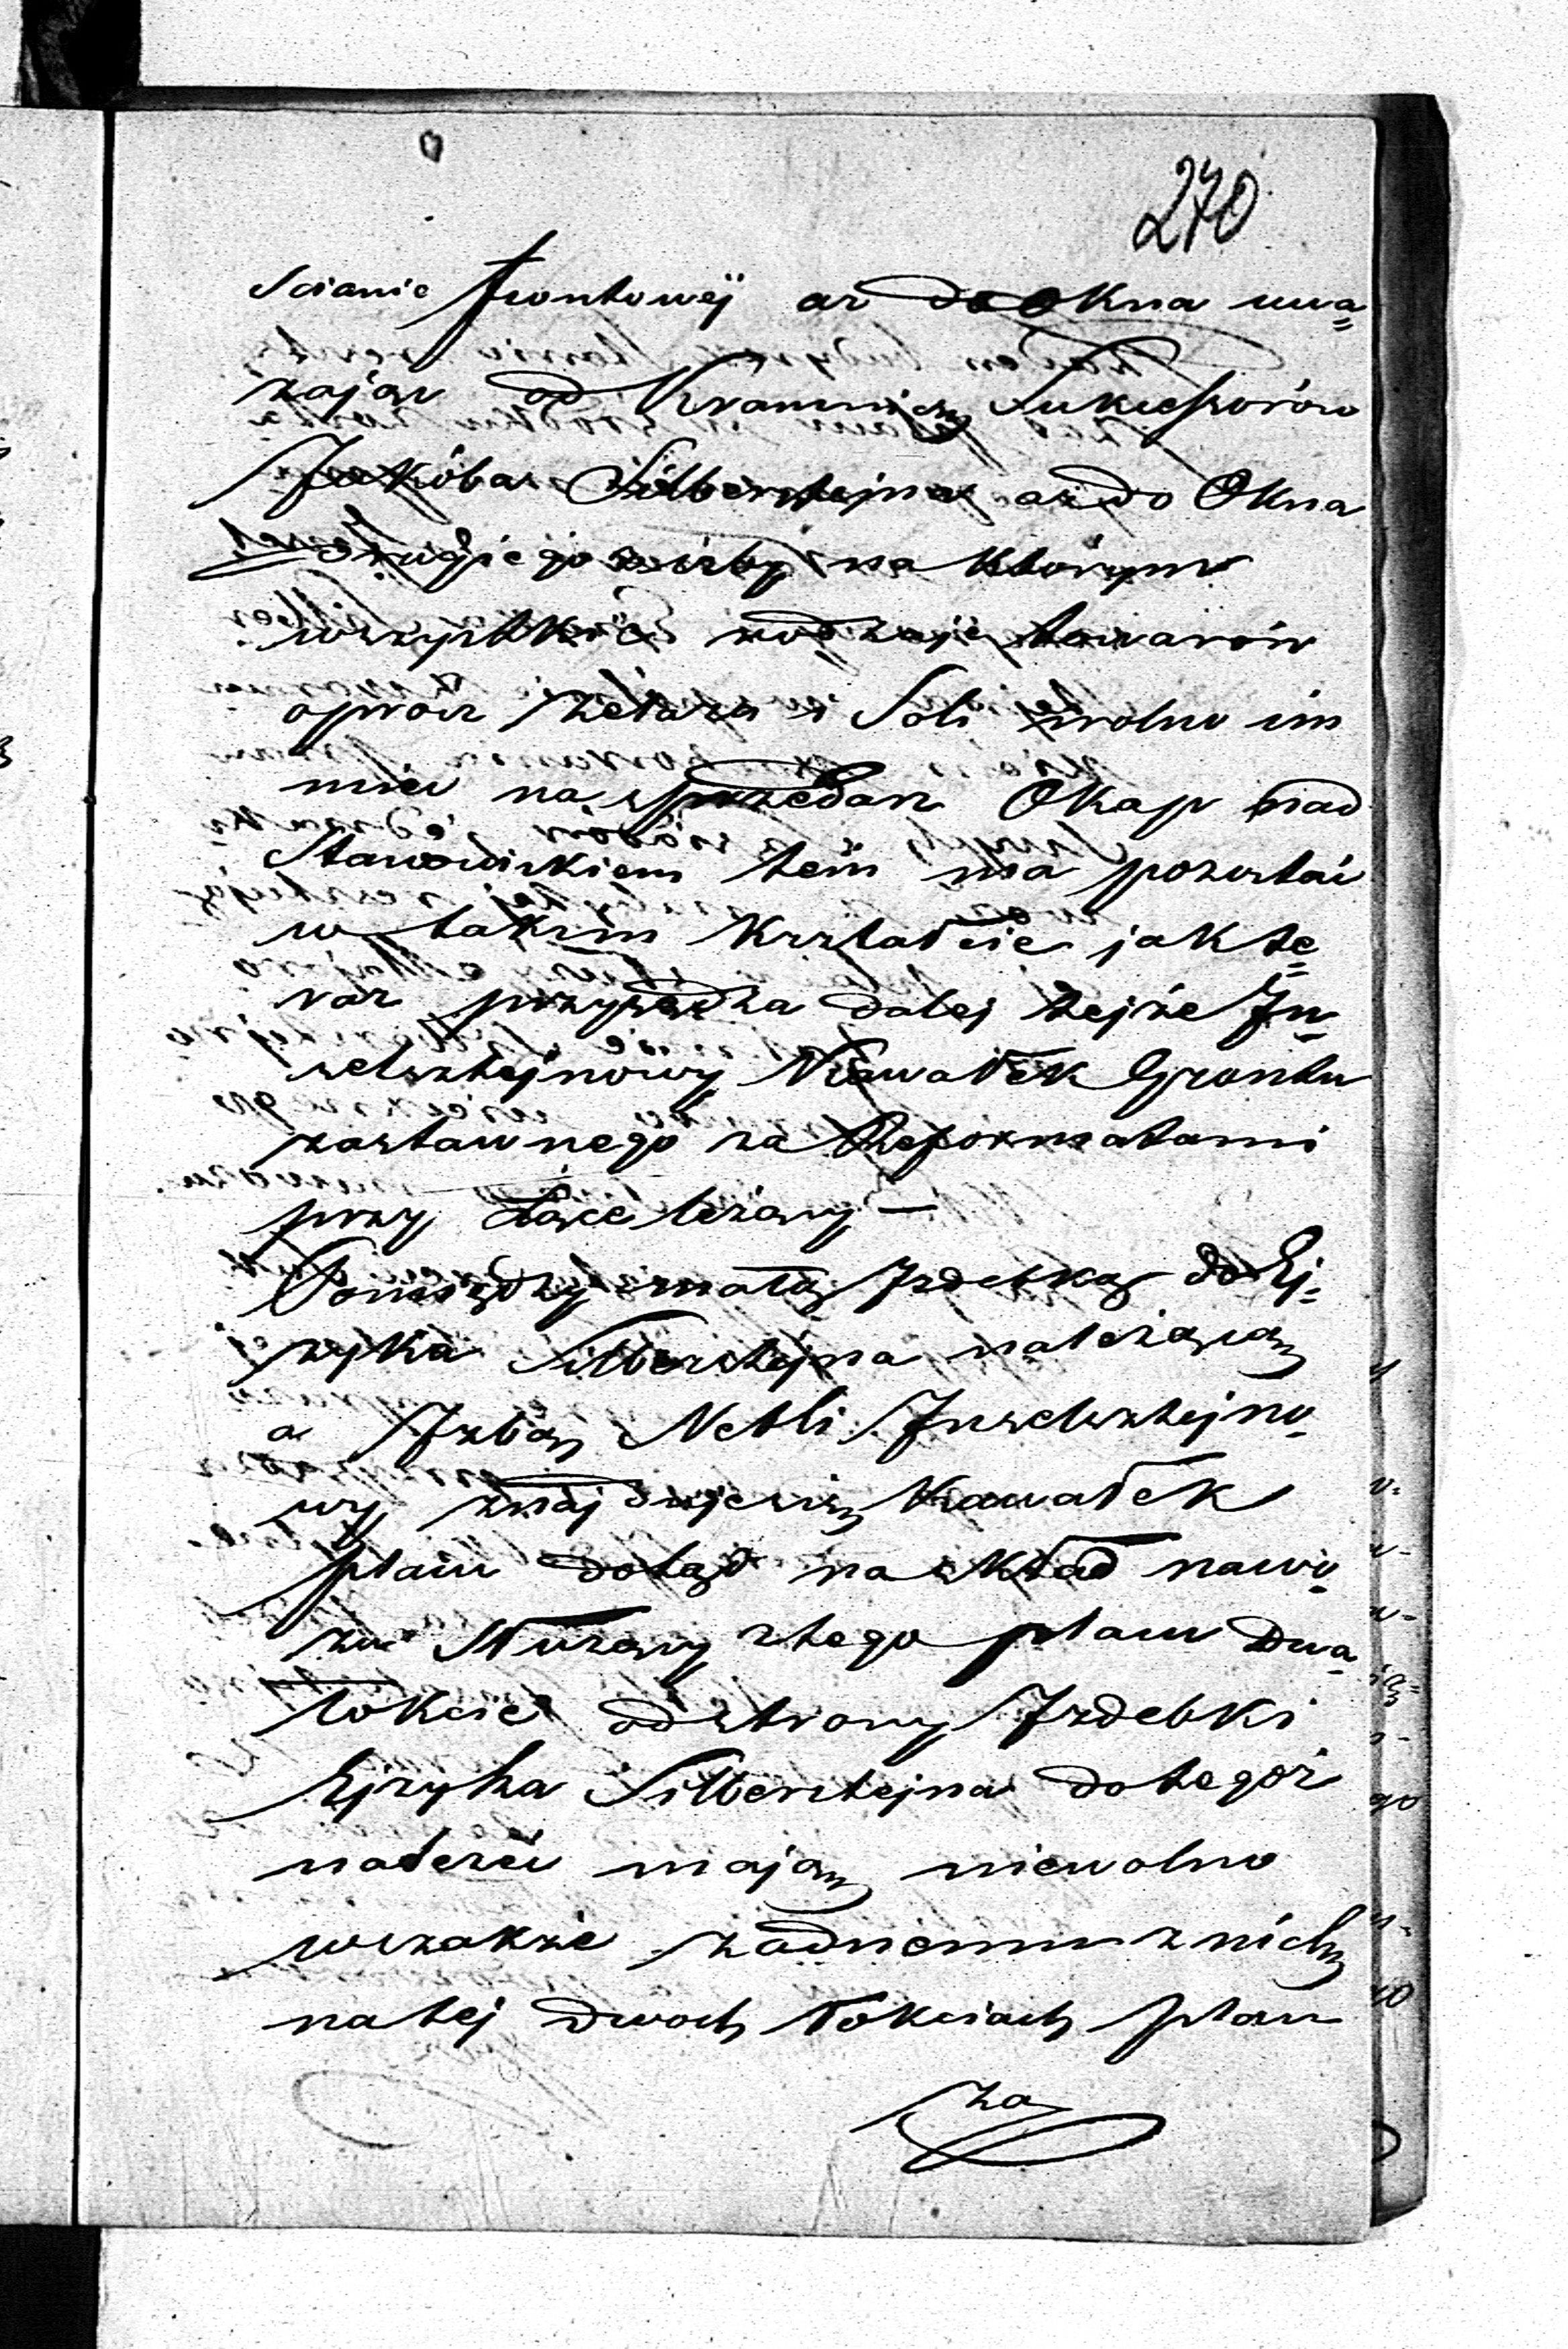 270
scianie frontowej az do okna uwa=
żając od Kramnicy Sukcessorów
Jakóba Silbersztejna az do Okna
drugiego izby na którym
wszystkie rodzaje towarów
oprócz żelaza i Soli wolno im
mieć na sprzedaz Okap nad
Stanowiskiem tem ma pozostać
w takim krztałcie jak te=
raz przypada dalej tejże In=
selsztejnowy Kawałek Gruntu
zastawnego za Reformatami
przy Łące leżący —
Pomiędzy małą Izdebką do Ej=
zyka Silbersztejna należącą
a Izbą Netli Inselsztejno=
wy znajdujesię Kawałek
placu dotąd na skład nawo=
zu Służący z tego placu Dwa
łokcie od strony Izdebki
Ejzyka Silbersztejna do tegoż
należeć mają niewolno
wszakże żadnemu z nich
na tej dwoch łokciach plac
za